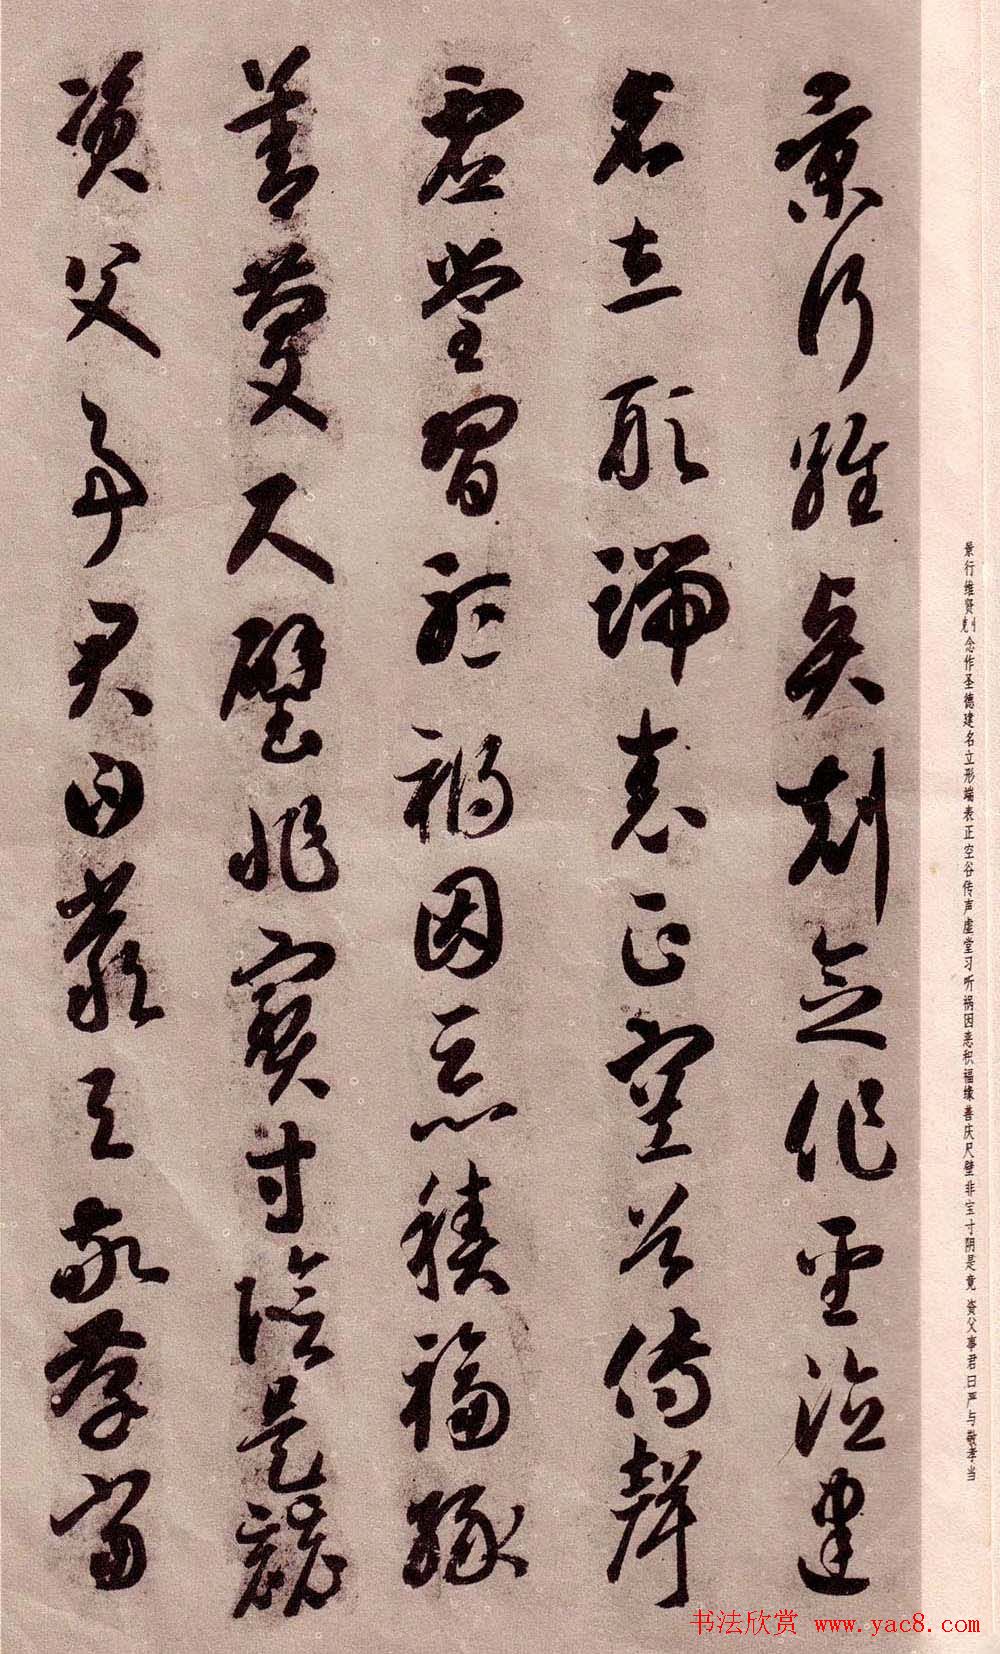 景行维贤剋念作圣德建名立形端表正空谷传声虚堂习听祸因恶积福缘善庆尺璧非宝寸阴是竟 资父事君曰严与敬孝当
景行維賢剋念作聖德建
名立形端表正空谷傳聲
虛堂習聽禍因惡積福緣
善慶尺璧非寶寸陰是競
資父事君曰嚴與敬孝當
书法欣赏 www.yac8.com